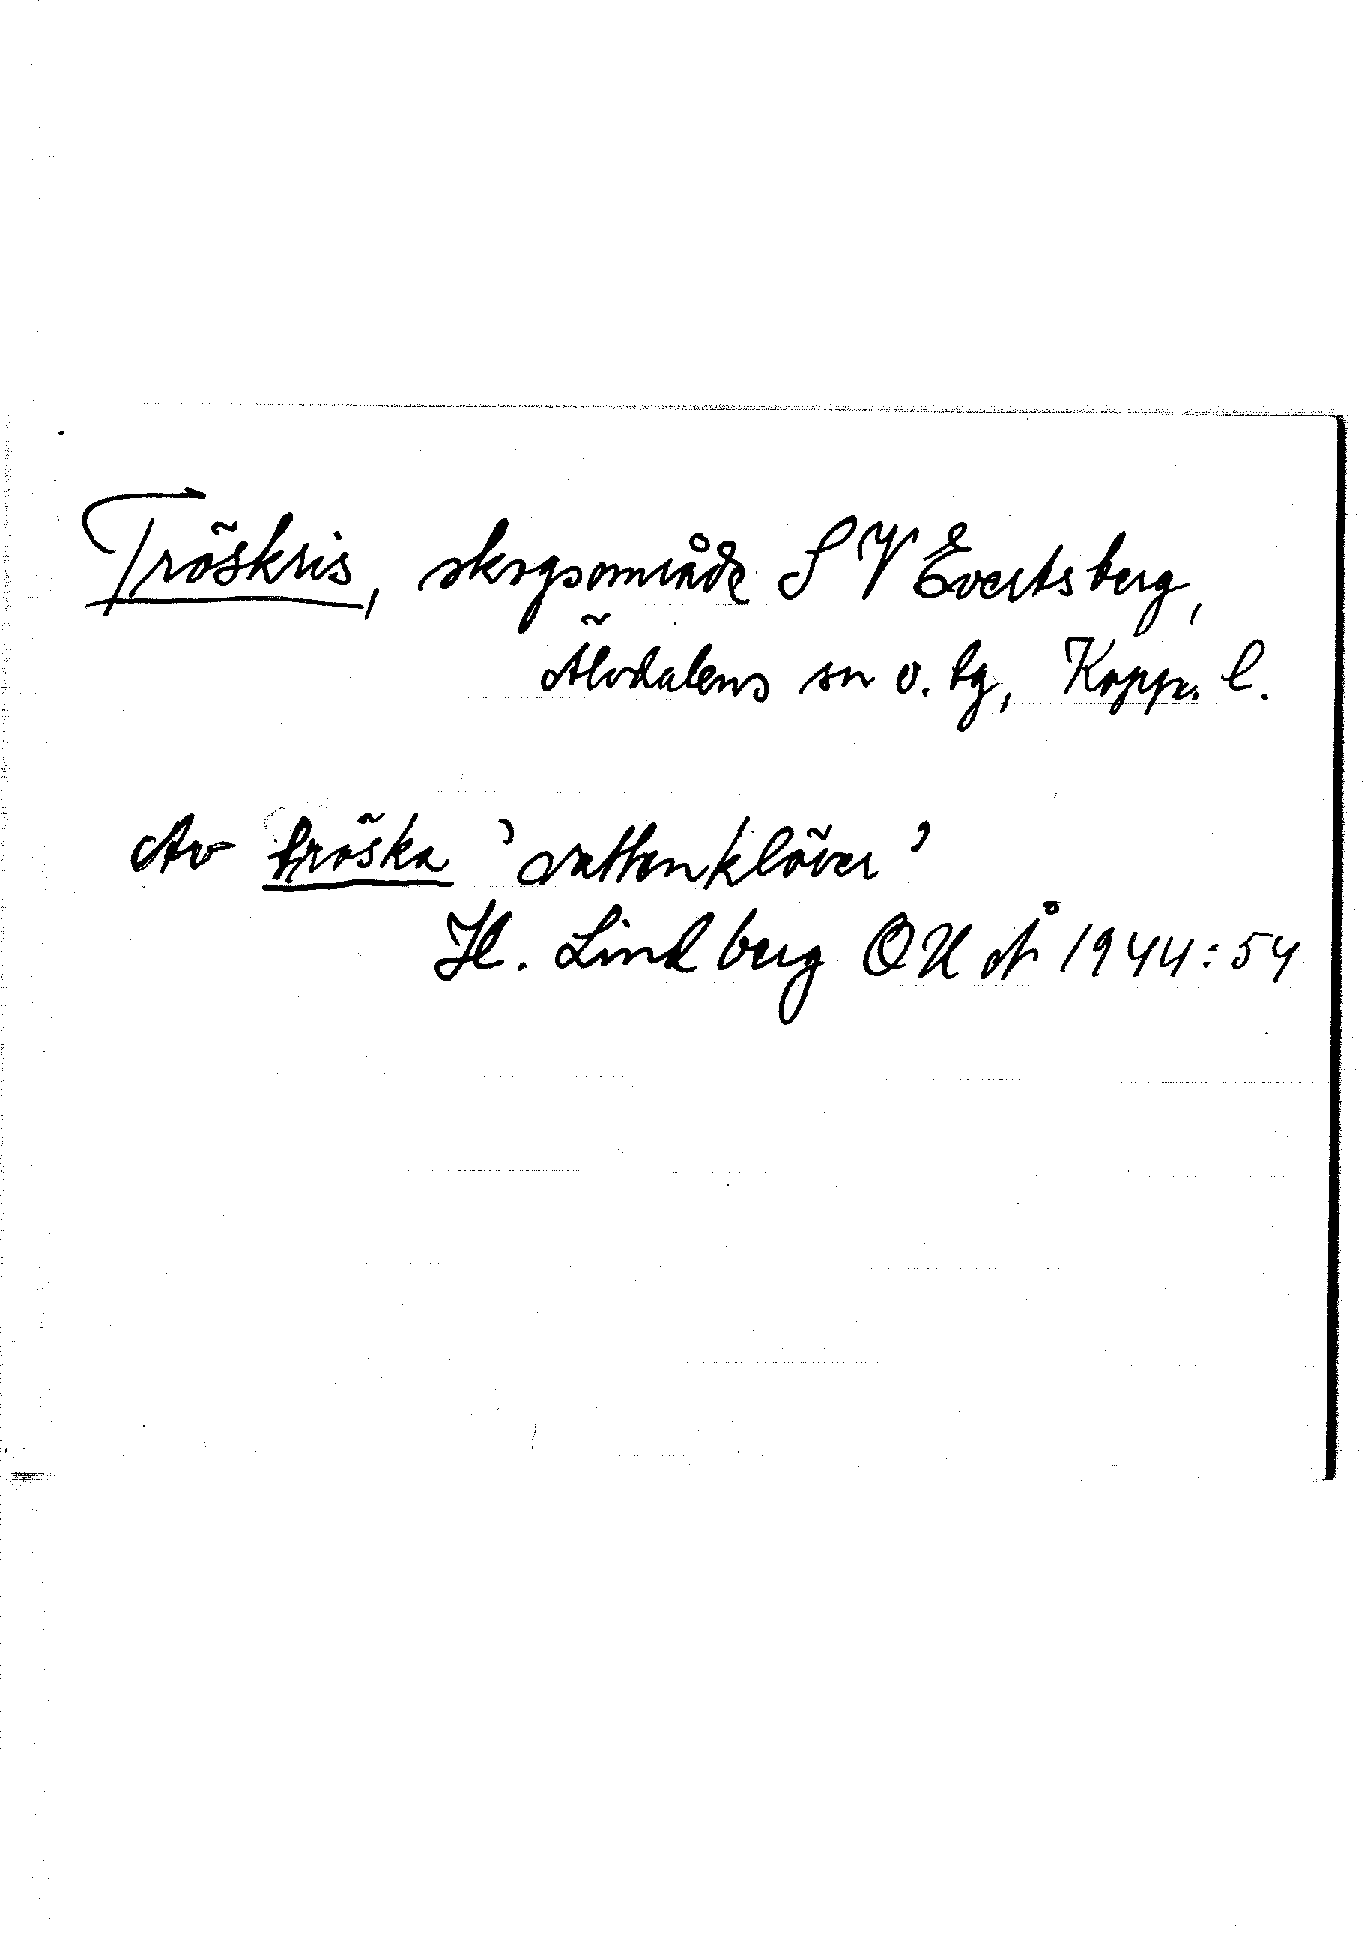 Tröskris, skogsområde S V Evertsberg,
Älvdalens sn o. tg, Kopp. l.
Av tröska 'vattenklöver'
Hl. Lindberg OUÅ 1944:54